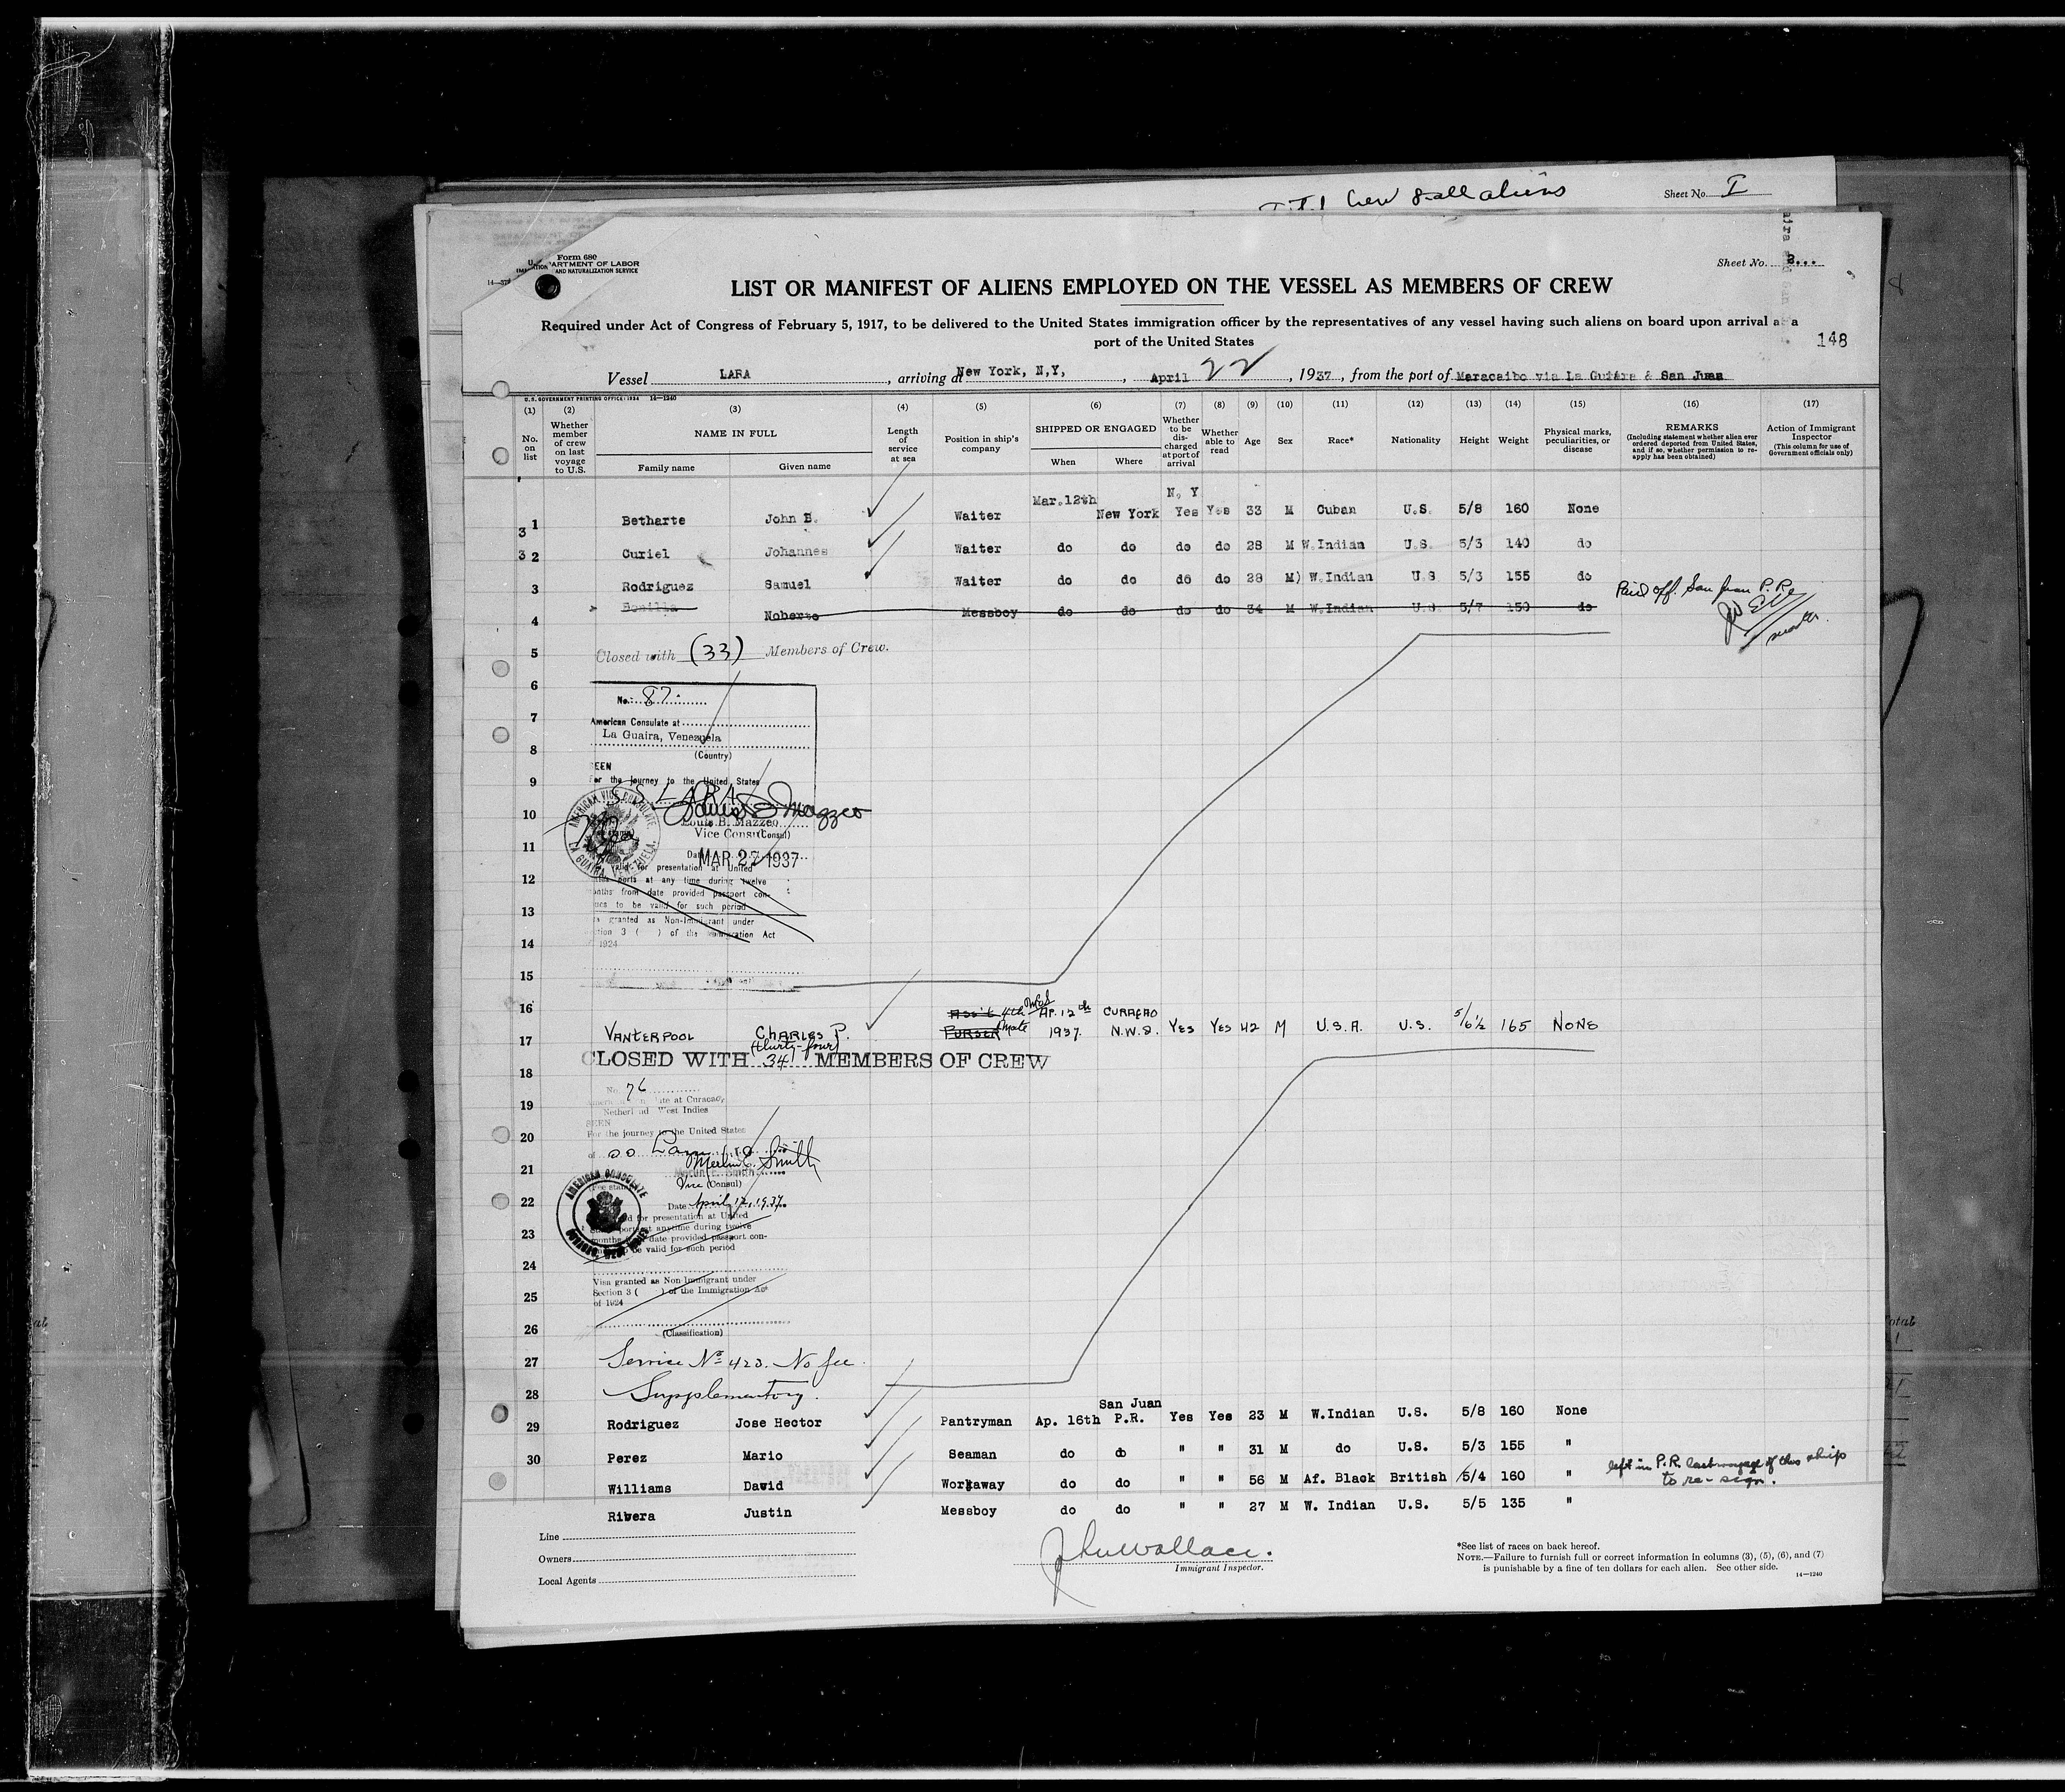 crew & all aliens Sheet No. I
Form 680
U.S. DEPARTMENT OF LABOR
IMMIGRATION AND NATURALIZATION SERVICE
Sheet No. 3...
LIST OR MANIFEST OF ALIENS EMPLOYED ON THE VESSEL AS MEMBERS OF CREW
Required under Act of Congress of February 5, 1917, to be delivered to the United States immigration officer by the representatives of any vessel having such aliens on board upon arrival at a
port of the United States
148
Vessel LARA, arriving at New York, N,Y, , April 22, 1937, from the port of Maracaibo via La Guiara & San Juan
U.S. GOVERNMENT PRINTING OFFICE: 1934 14—1240
(1) (2) (3) (4) (5) (6) (7) (8) (9) (10) (11) (12) (13) (14) (15) (16) (17)
No. on list
Whether member of crew on last voyage to U.S.
NAME IN FULL
Family name Given name
Length of service at sea
Position in ship's company
SHIPPED OR ENGAGED
When Where
Whether to be discharged at port of arrival
Whether able to read
Age Sex Race* Nationality Height Weight
Physical marks, peculiarities, or disease
REMARKS
(Including statement whether alien ever ordered deported from United States, and if so, whether permission to re-apply has been obtained)
Action of Immigrant Inspector
(This column for use of Government officials only)
3 1 Betharte John B. Waiter Mar.12th New York N, Y Yes Yes 33 M Cuban U.S. 5/8 160 None
3 2 Curiel Johannes Waiter do do do do 28 M W.Indian U.S. 5/3 140 do
3 Rodriguez Samuel Waiter do do do do 28 M) W.Indian U.S 5/3 155 do
4 Bonilla Noberto Messboy do do do do 34 M W.Indian U.S. 5/7 150 do Paid off. San Juan P.R.
master
5 Closed with (33) Members of Crew.
6
No. 87.
7 American Consulate at
La Guaira, Venezuela
8 (Country)
SEEN
9 For the journey to the United States
S.S. LARA
10 Louis B Mazzeo
Louis B. Mazzeo
Vice Consul (Consul)
AMERICAN VICE CONSULATE
LA GUAIRA, VENEZUELA.
11 Date MAR 27 1937
valid for presentation at United
12 ports at any time during twelve
months from date provided passport con-
13 ues to be valid for such period
granted as Non-Immigrant under
14 Section 3 ( ) of the Immigration Act
1924
15
16
17 VANTERPOOL CHARLES P. ASS'T PURSER 4th Mate AP. 12th 1937. CURAÇAO N.W.I. YES YES 42 M U.S.A. U.S. 5/6½ 165 NONE
(thirty-four)
CLOSED WITH 34 MEMBERS OF CREW
18
No. 76
19 American Consulate at Curacao,
Netherland West Indies
SEEN
20 For the journey to the United States
of SS Lara
21 Merlin E. Smith
Merlin E. Smith
Vice (Consul)
22 Date April 12, 1937.
AMERICAN CONSULATE
CURACAO, WEST INDIES
for presentation at United
ports at anytime during twelve
23 months from date provided passport con-
be valid for such period
24
Visa granted as Non Immigrant under
25 Section 3 ( ) of the Immigration Act
of 1924
26
(Classification)
27 Service No 423. No fee.
28 Supplementory.
29 Rodriguez Jose Hector Pantryman Ap. 16th San Juan P.R. Yes Yes 23 M W.Indian U.S. 5/8 160 None
30 Perez Mario Seaman do do " " 31 M do U.S. 5/3 155 "
Williams David Workaway do do " " 56 M Af. Black British 5/4 160 " left in P.R. last voyage of this ship
to re-sign.
Rivera Justin Messboy do do " " 27 M W. Indian U.S. 5/5 135 "
Line
Owners
Local Agents
John Wallace.
Immigrant Inspector.
*See list of races on back hereof.
NOTE.—Failure to furnish full or correct information in columns (3), (5), (6), and (7)
is punishable by a fine of ten dollars for each alien. See other side. 14—1240